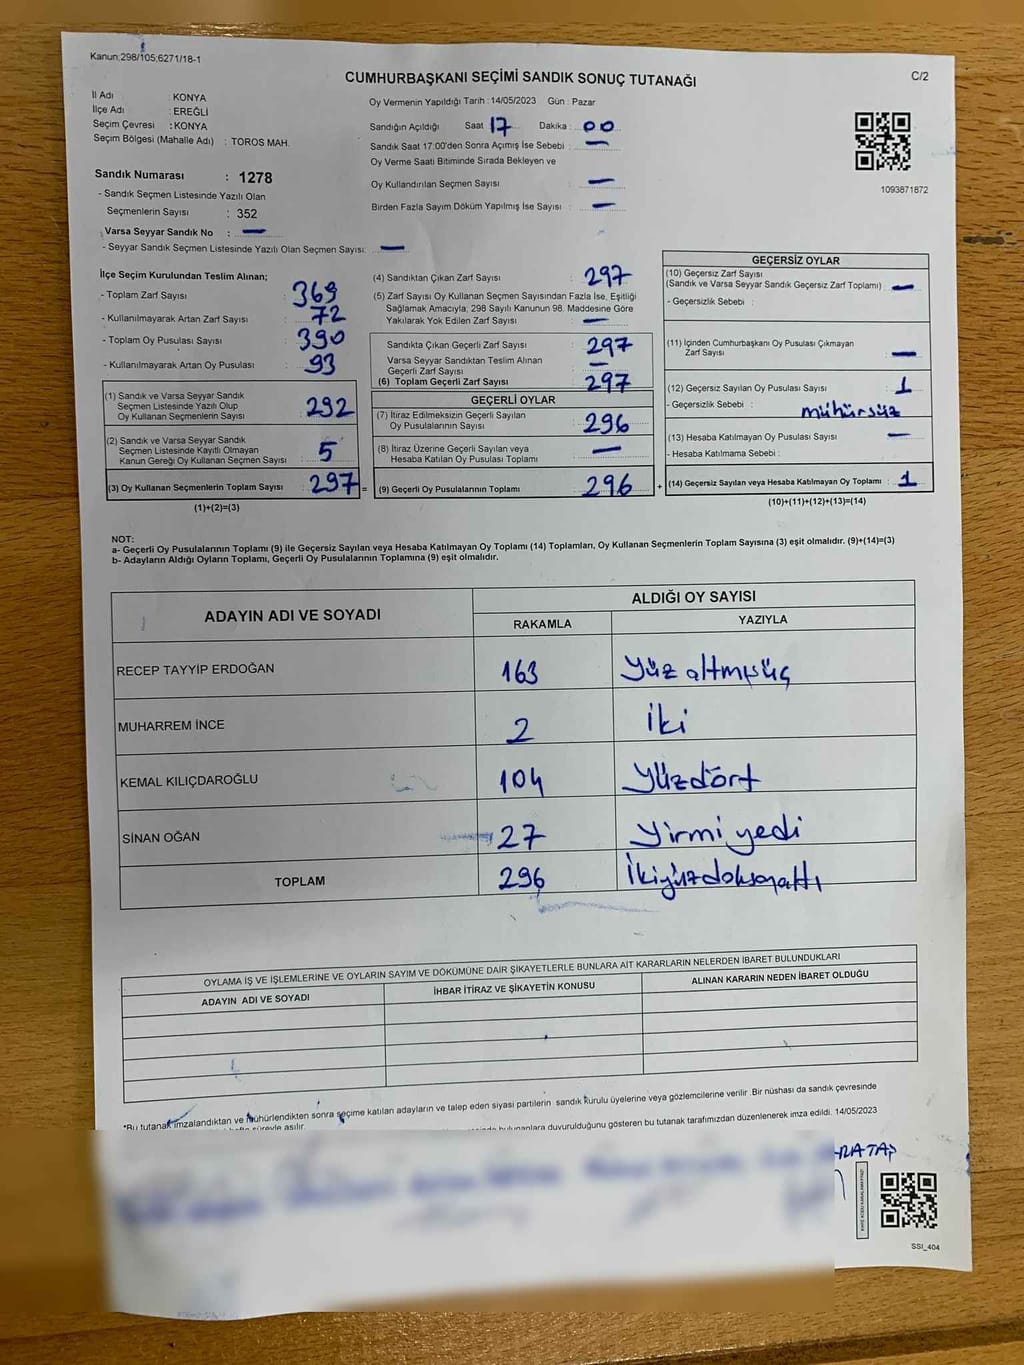 Kanun;298/105;6271/18-1
C/2
CUMHURBAŞKANI SEÇİMİ SANDIK SONUÇ TUTANAĞI
İl Adı : KONYA
İlçe Adı : EREĞLİ
Seçim Çevresi : KONYA
Seçim Bölgesi (Mahalle Adı) : TOROS MAH.
Sandık Numarası : 1278
- Sandık Seçmen Listesinde Yazılı Olan
Seçmenlerin Sayısı : 352
Varsa Seyyar Sandık No : —
- Seyyar Sandık Seçmen Listesinde Yazılı Olan Seçmen Sayısı: —
Oy Vermenin Yapıldığı Tarih : 14/05/2023 Gün : Pazar
Sandığın Açıldığı Saat 17 Dakika : 00
Sandık Saat 17:00'den Sonra Açımış İse Sebebi : —
Oy Verme Saati Bitiminde Sırada Bekleyen ve
Oy Kullandırılan Seçmen Sayısı : —
Birden Fazla Sayım Döküm Yapılmış İse Sayısı : —
1093871872
İlçe Seçim Kurulundan Teslim Alınan;
- Toplam Zarf Sayısı : 369
- Kullanılmayarak Artan Zarf Sayısı : 72
- Toplam Oy Pusulası Sayısı : 390
- Kullanılmayarak Artan Oy Pusulası : 93
(1) Sandık ve Varsa Seyyar Sandık
Seçmen Listesinde Yazılı Olup
Oy Kullanan Seçmenlerin Sayısı : 292
(2) Sandık ve Varsa Seyyar Sandık
Seçmen Listesinde Kayıtlı Olmayan
Kanun Gereği Oy Kullanan Seçmen Sayısı : 5
(3) Oy Kullanan Seçmenlerin Toplam Sayısı : 297 =
(1)+(2)=(3)
(4) Sandıktan Çıkan Zarf Sayısı : 297
(5) Zarf Sayısı Oy Kullanan Seçmen Sayısından Fazla İse, Eşitliği
Sağlamak Amacıyla, 298 Sayılı Kanunun 98. Maddesine Göre
Yakılarak Yok Edilen Zarf Sayısı : —
Sandıkta Çıkan Geçerli Zarf Sayısı : 297
Varsa Seyyar Sandıktan Teslim Alınan
Geçerli Zarf Sayısı : —
(6) Toplam Geçerli Zarf Sayısı : 297
GEÇERLİ OYLAR
(7) İtiraz Edilmeksizin Geçerli Sayılan
Oy Pusulalarının Sayısı : 296
(8) İtiraz Üzerine Geçerli Sayılan veya
Hesaba Katılan Oy Pusulası Toplamı : —
(9) Geçerli Oy Pusulalarının Toplamı : 296 +
GEÇERSİZ OYLAR
(10) Geçersiz Zarf Sayısı
(Sandık ve Varsa Seyyar Sandık Geçersiz Zarf Toplamı) : —
- Geçersizlik Sebebi :
(11) İçinden Cumhurbaşkanı Oy Pusulası Çıkmayan
Zarf Sayısı : —
(12) Geçersiz Sayılan Oy Pusulası Sayısı : 1
- Geçersizlik Sebebi : mühürsüz
(13) Hesaba Katılmayan Oy Pusulası Sayısı : —
- Hesaba Katılmama Sebebi :
(14) Geçersiz Sayılan veya Hesaba Katılmayan Oy Toplamı : 1
(10)+(11)+(12)+(13)=(14)
NOT:
a- Geçerli Oy Pusulalarının Toplamı (9) ile Geçersiz Sayılan veya Hesaba Katılmayan Oy Toplamı (14) Toplamları, Oy Kullanan Seçmenlerin Toplam Sayısına (3) eşit olmalıdır. (9)+(14)=(3)
b- Adayların Aldığı Oyların Toplamı, Geçerli Oy Pusulalarının Toplamına (9) eşit olmalıdır.
ADAYIN ADI VE SOYADI
ALDIĞI OY SAYISI
RAKAMLA YAZIYLA
RECEP TAYYİP ERDOĞAN 163 Yüz altmışüç
MUHARREM İNCE 2 İki
KEMAL KILIÇDAROĞLU 104 Yüzdört
SİNAN OĞAN 27 Yirmi yedi
TOPLAM 296 İkiyüzdoksanaltı
OYLAMA İŞ VE İŞLEMLERİNE VE OYLARIN SAYIM VE DÖKÜMÜNE DAİR ŞİKAYETLERLE BUNLARA AİT KARARLARIN NELERDEN İBARET BULUNDUKLARI
ADAYIN ADI VE SOYADI İHBAR İTİRAZ VE ŞİKAYETİN KONUSU ALINAN KARARIN NEDEN İBARET OLDUĞU
*Bu tutanak imzalandıktan ve mühürlendikten sonra seçime katılan adayların ve talep eden siyasi partilerin sandık kurulu üyelerine veya gözlemcilerine verilir. Bir nüshası da sandık çevresinde
süreyle asılır. bulunanlara duyurulduğunu gösteren bu tutanak tarafımızdan düzenlenerek imza edildi. 14/05/2023
SSI_404